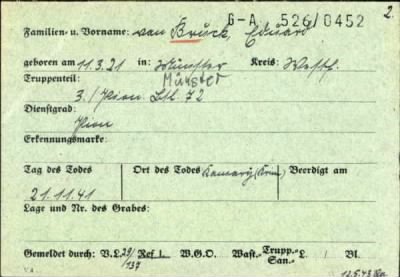 G-A 526/0452 2.
Familien- u. Vorname: van Bruck, Eduard
geboren am 11.3.21 in: Münster Kreis: Westf.
Münster
Truppenteil:
3./Pion. Btl. 72
Dienstgrad:
Pion
Erkennungsmarke:
Tag des Todes Ort des Todes Kamary (Krim) Beerdigt am
21.11.41
Lage und Nr. des Grabes:
Gemeldet durch: V.L. 29/137 Ref 1. W.G.O. Wast.- Trupp.- San.- L. Bl.
12.5.43